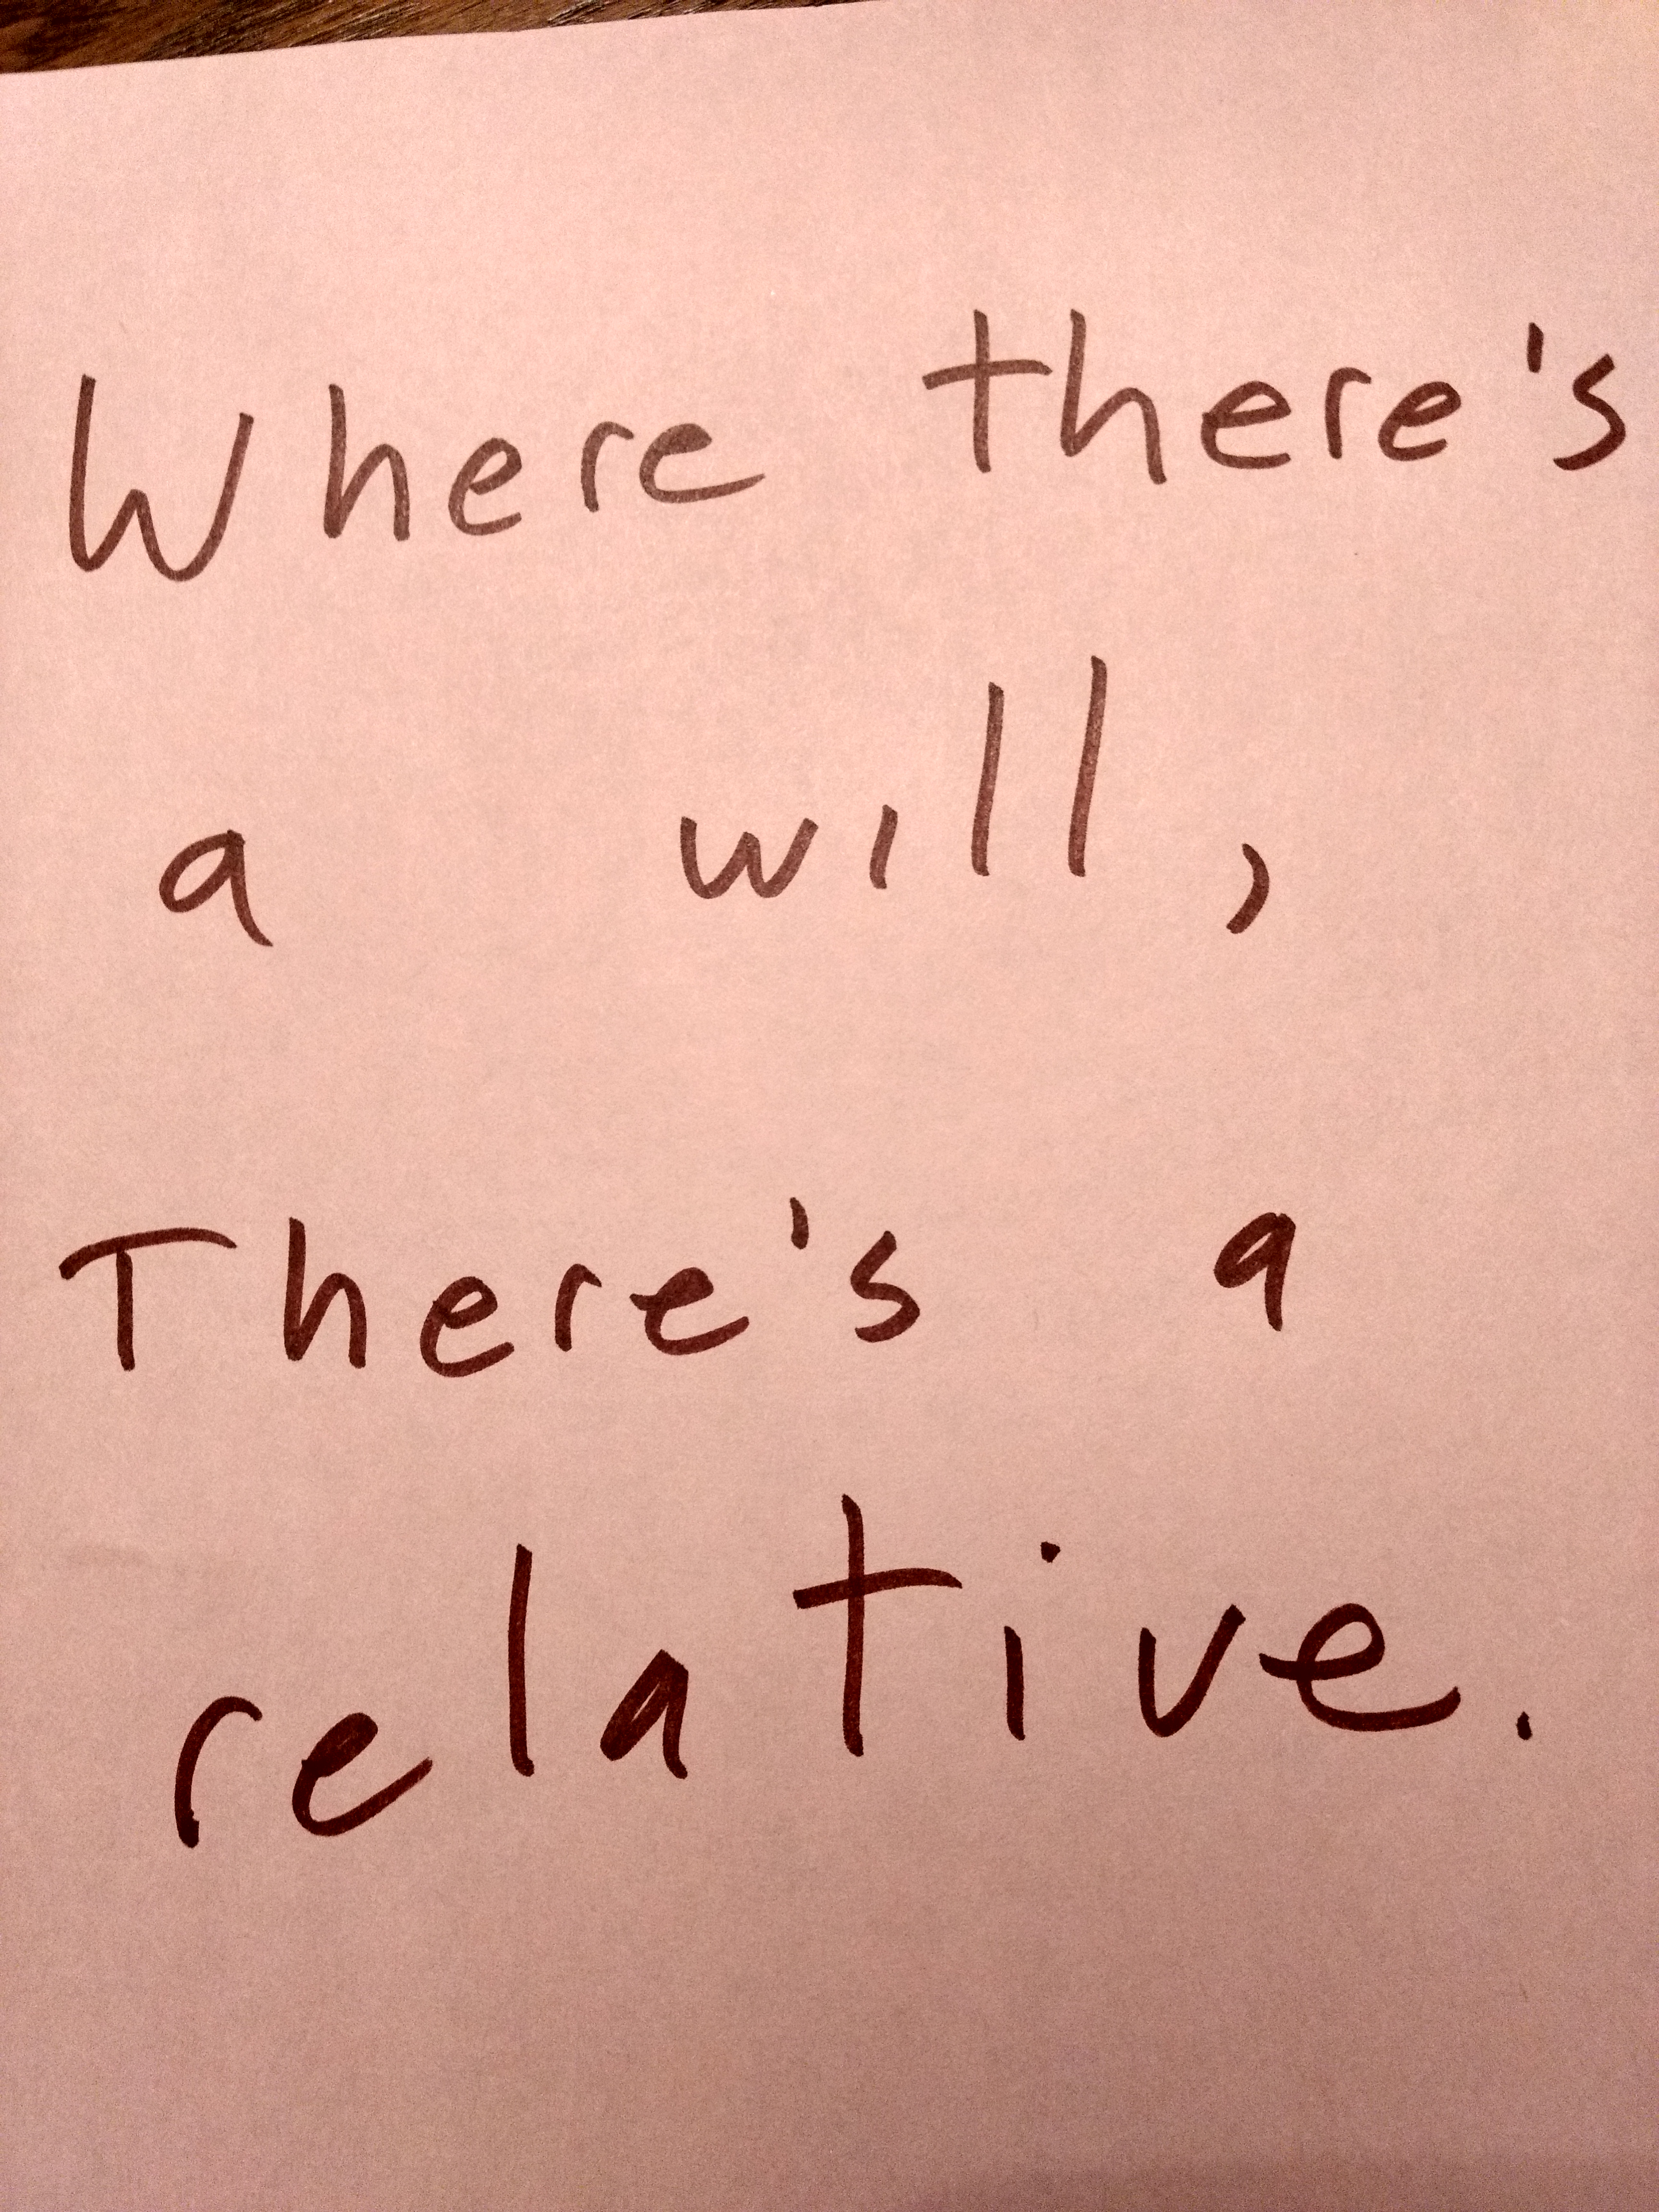 Where there's
a will,
There's a
relative.